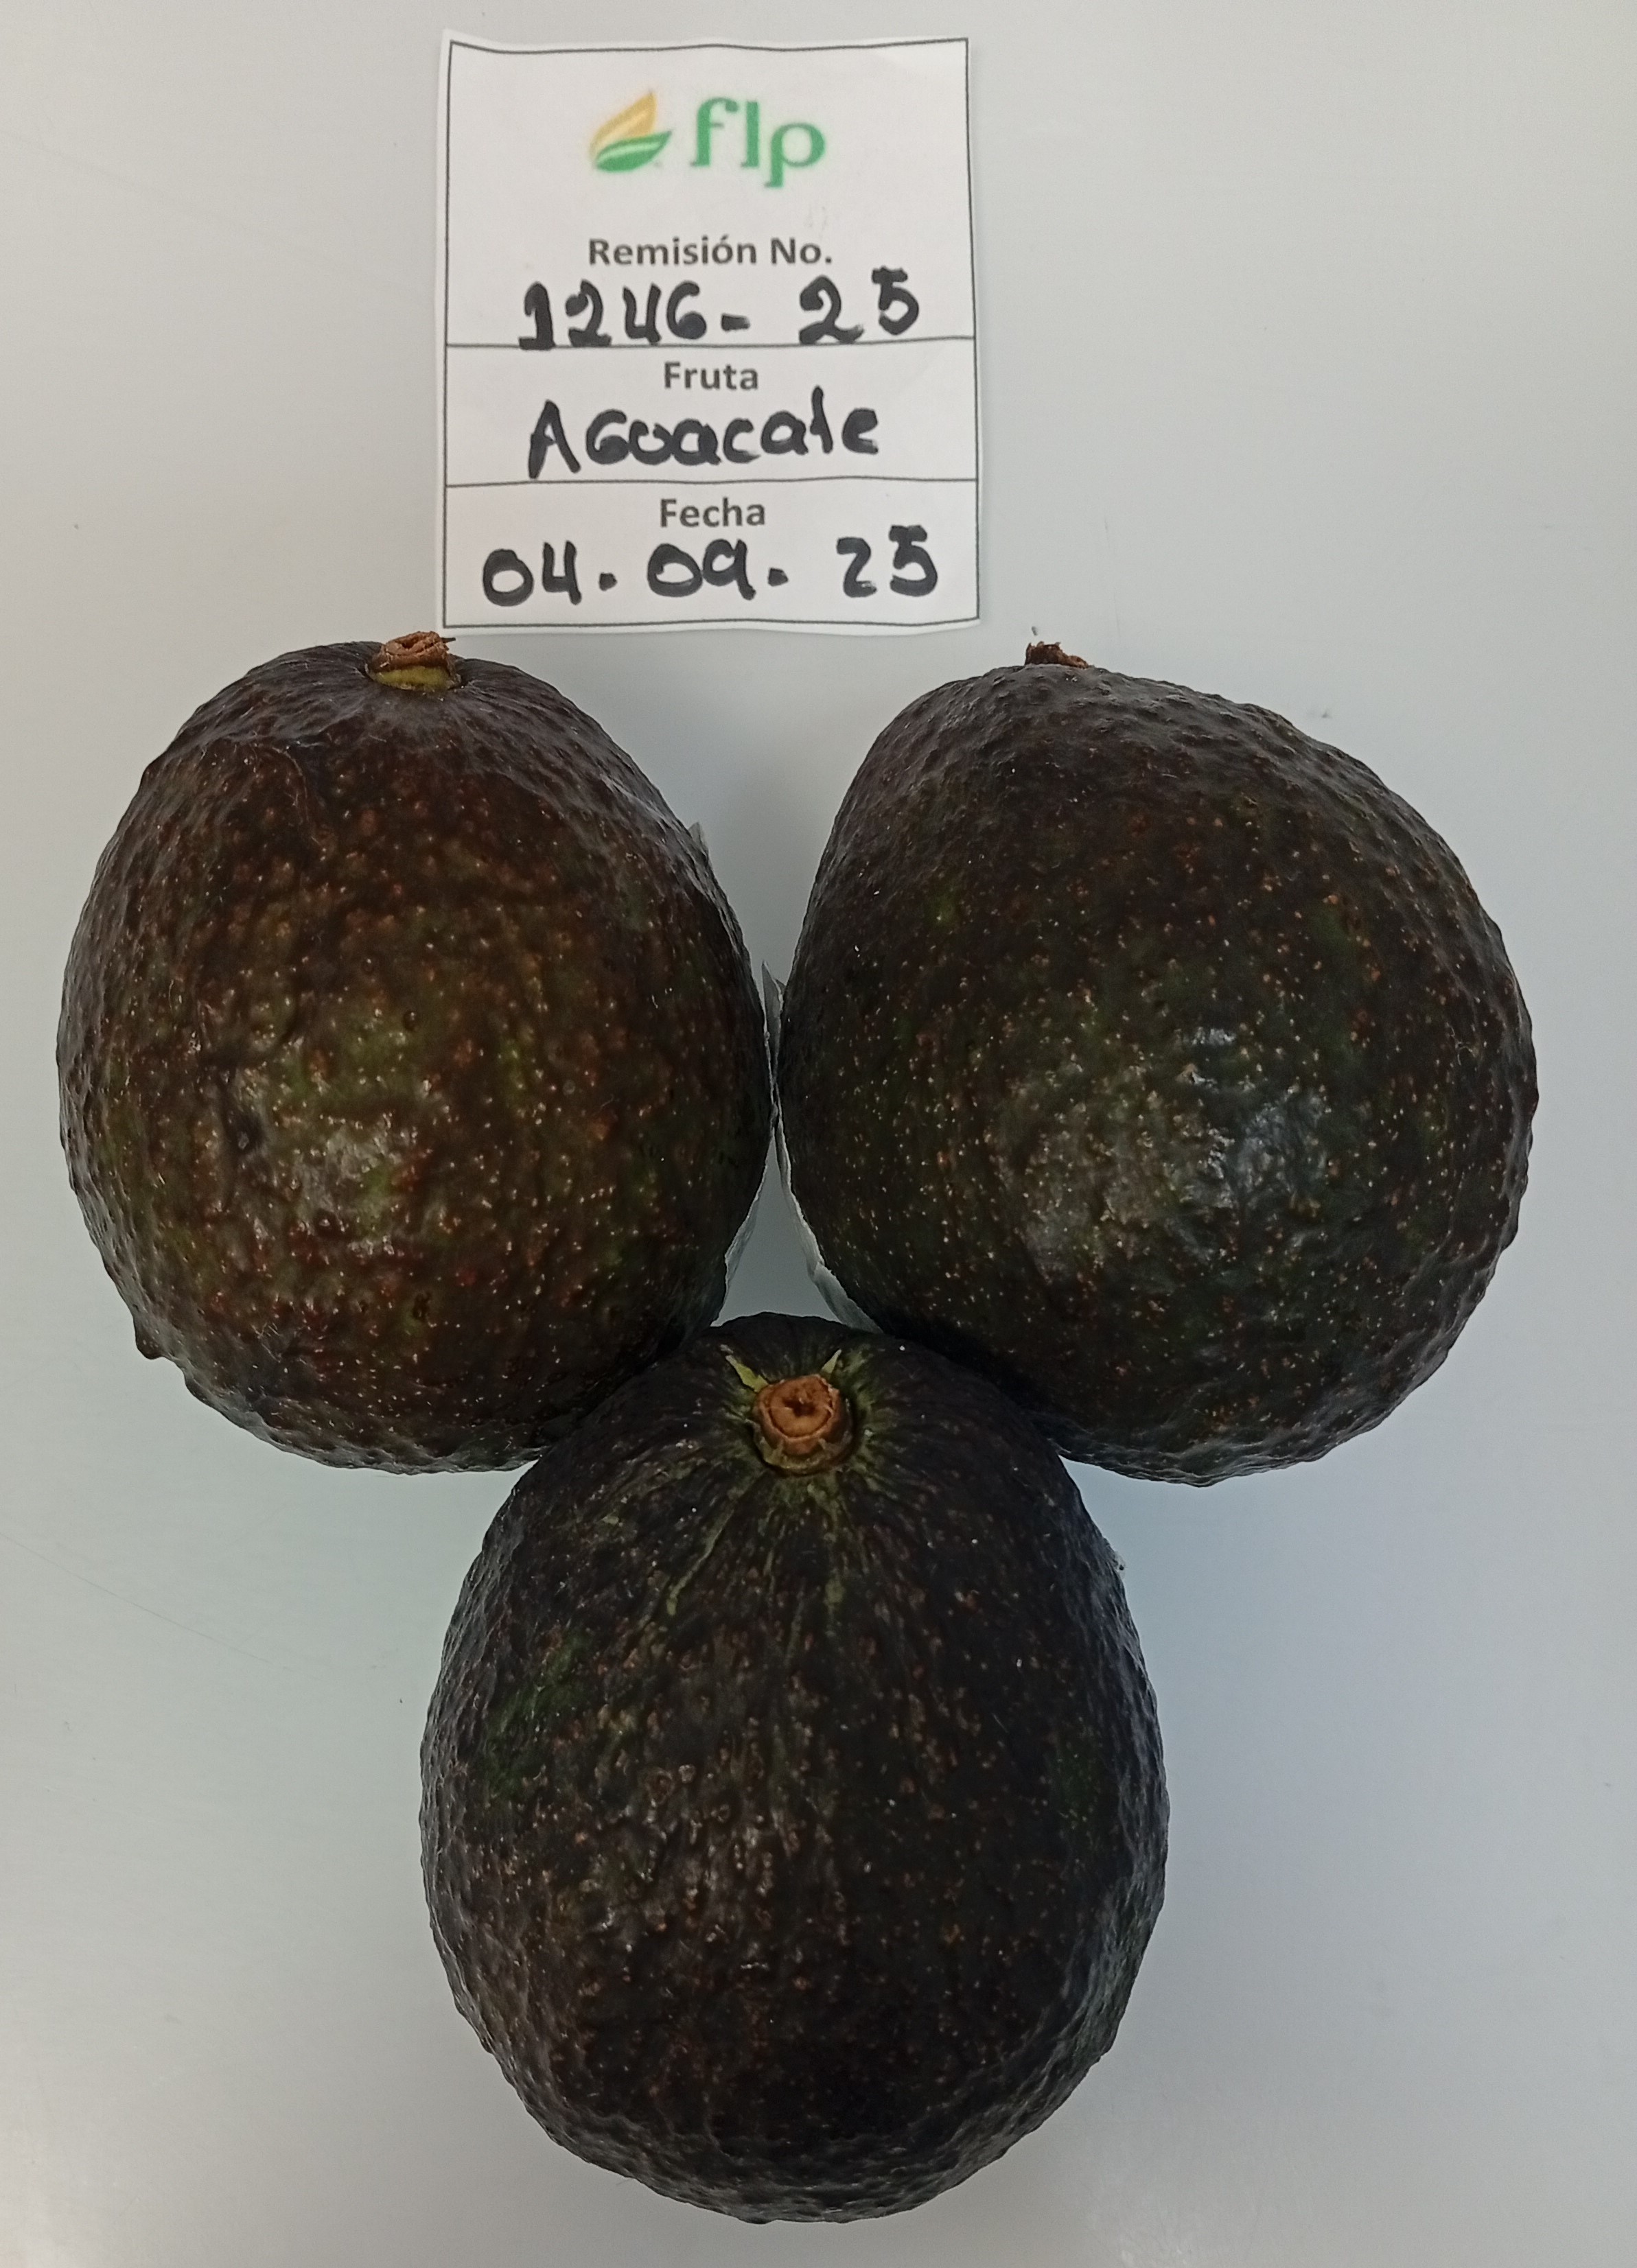 flp
Remisión No.
1246- 25
Fruta
AGuacate
Fecha
04. 09. 25